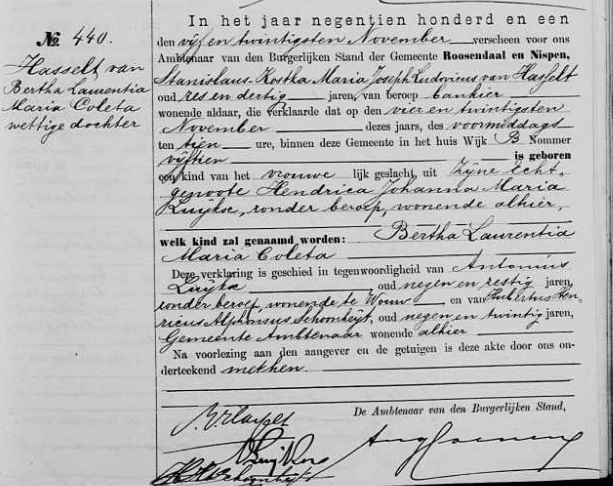 № 440.
Hasselt van
Bertha Laurentia
Maria Coleta
wettige dochter
In het jaar negentien honderd en een
den vijf en twintigsten November verscheen voor ons
Ambtenaar van den Burgerlijken Stand der Gemeente Roosendaal en Nispen,
Stanislaus Kostka Maria Joseph Ludovicus van Hasselt
oud zes en dertig jaren, van beroep bankier
wonende aldaar, die verklaarde dat op den vier en twintigsten
November dezes jaars, des voormiddags
ten tien ure, binnen deze Gemeente in het huis Wijk B Nommer
vijftien is geboren
een kind van het vrouwe lijk geslacht, uit zijne echt-
genoote Hendrica Johanna Maria
Luijkx, zonder beroep, wonende alhier,
welk kind zal genaamd worden: Bertha Laurentia
Maria Coleta
Deze verklaring is geschied in tegenwoordigheid van Antonius
Luijkx oud negen en zestig jaren,
zonder beroep, wonende te Wouw en van Hubertus Hen-
ricus Alphonsus Schonheijt, oud negen en twintig jaren,
Gemeente Ambtenaar wonende alhier
Na voorlezing aan den aangever en de getuigen is deze akte door ons on-
derteekend met hen.
De Ambtenaar van den Burgerlijken Stand,